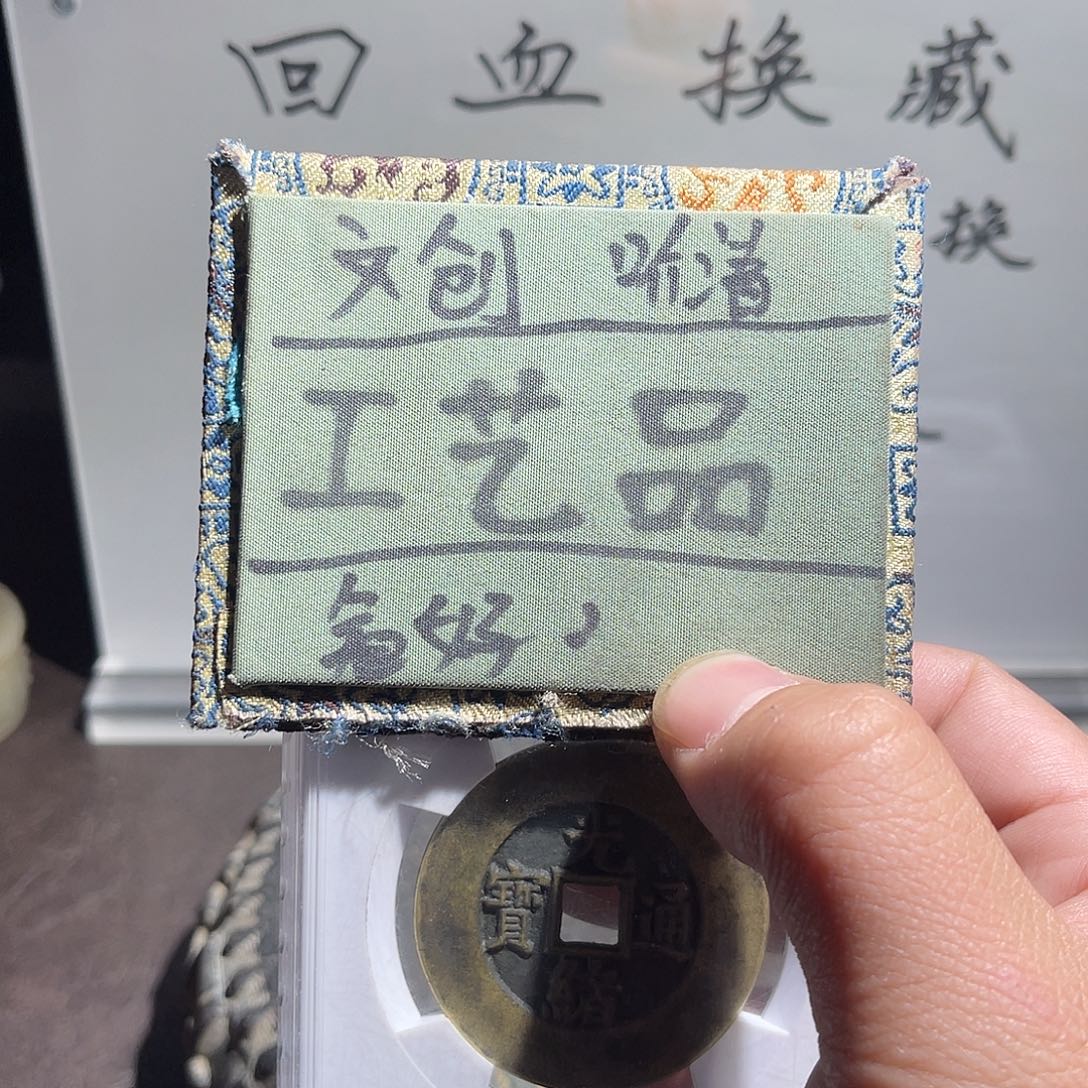 回血换藏
换
文创 听清
工艺品
看好
光緒通寶